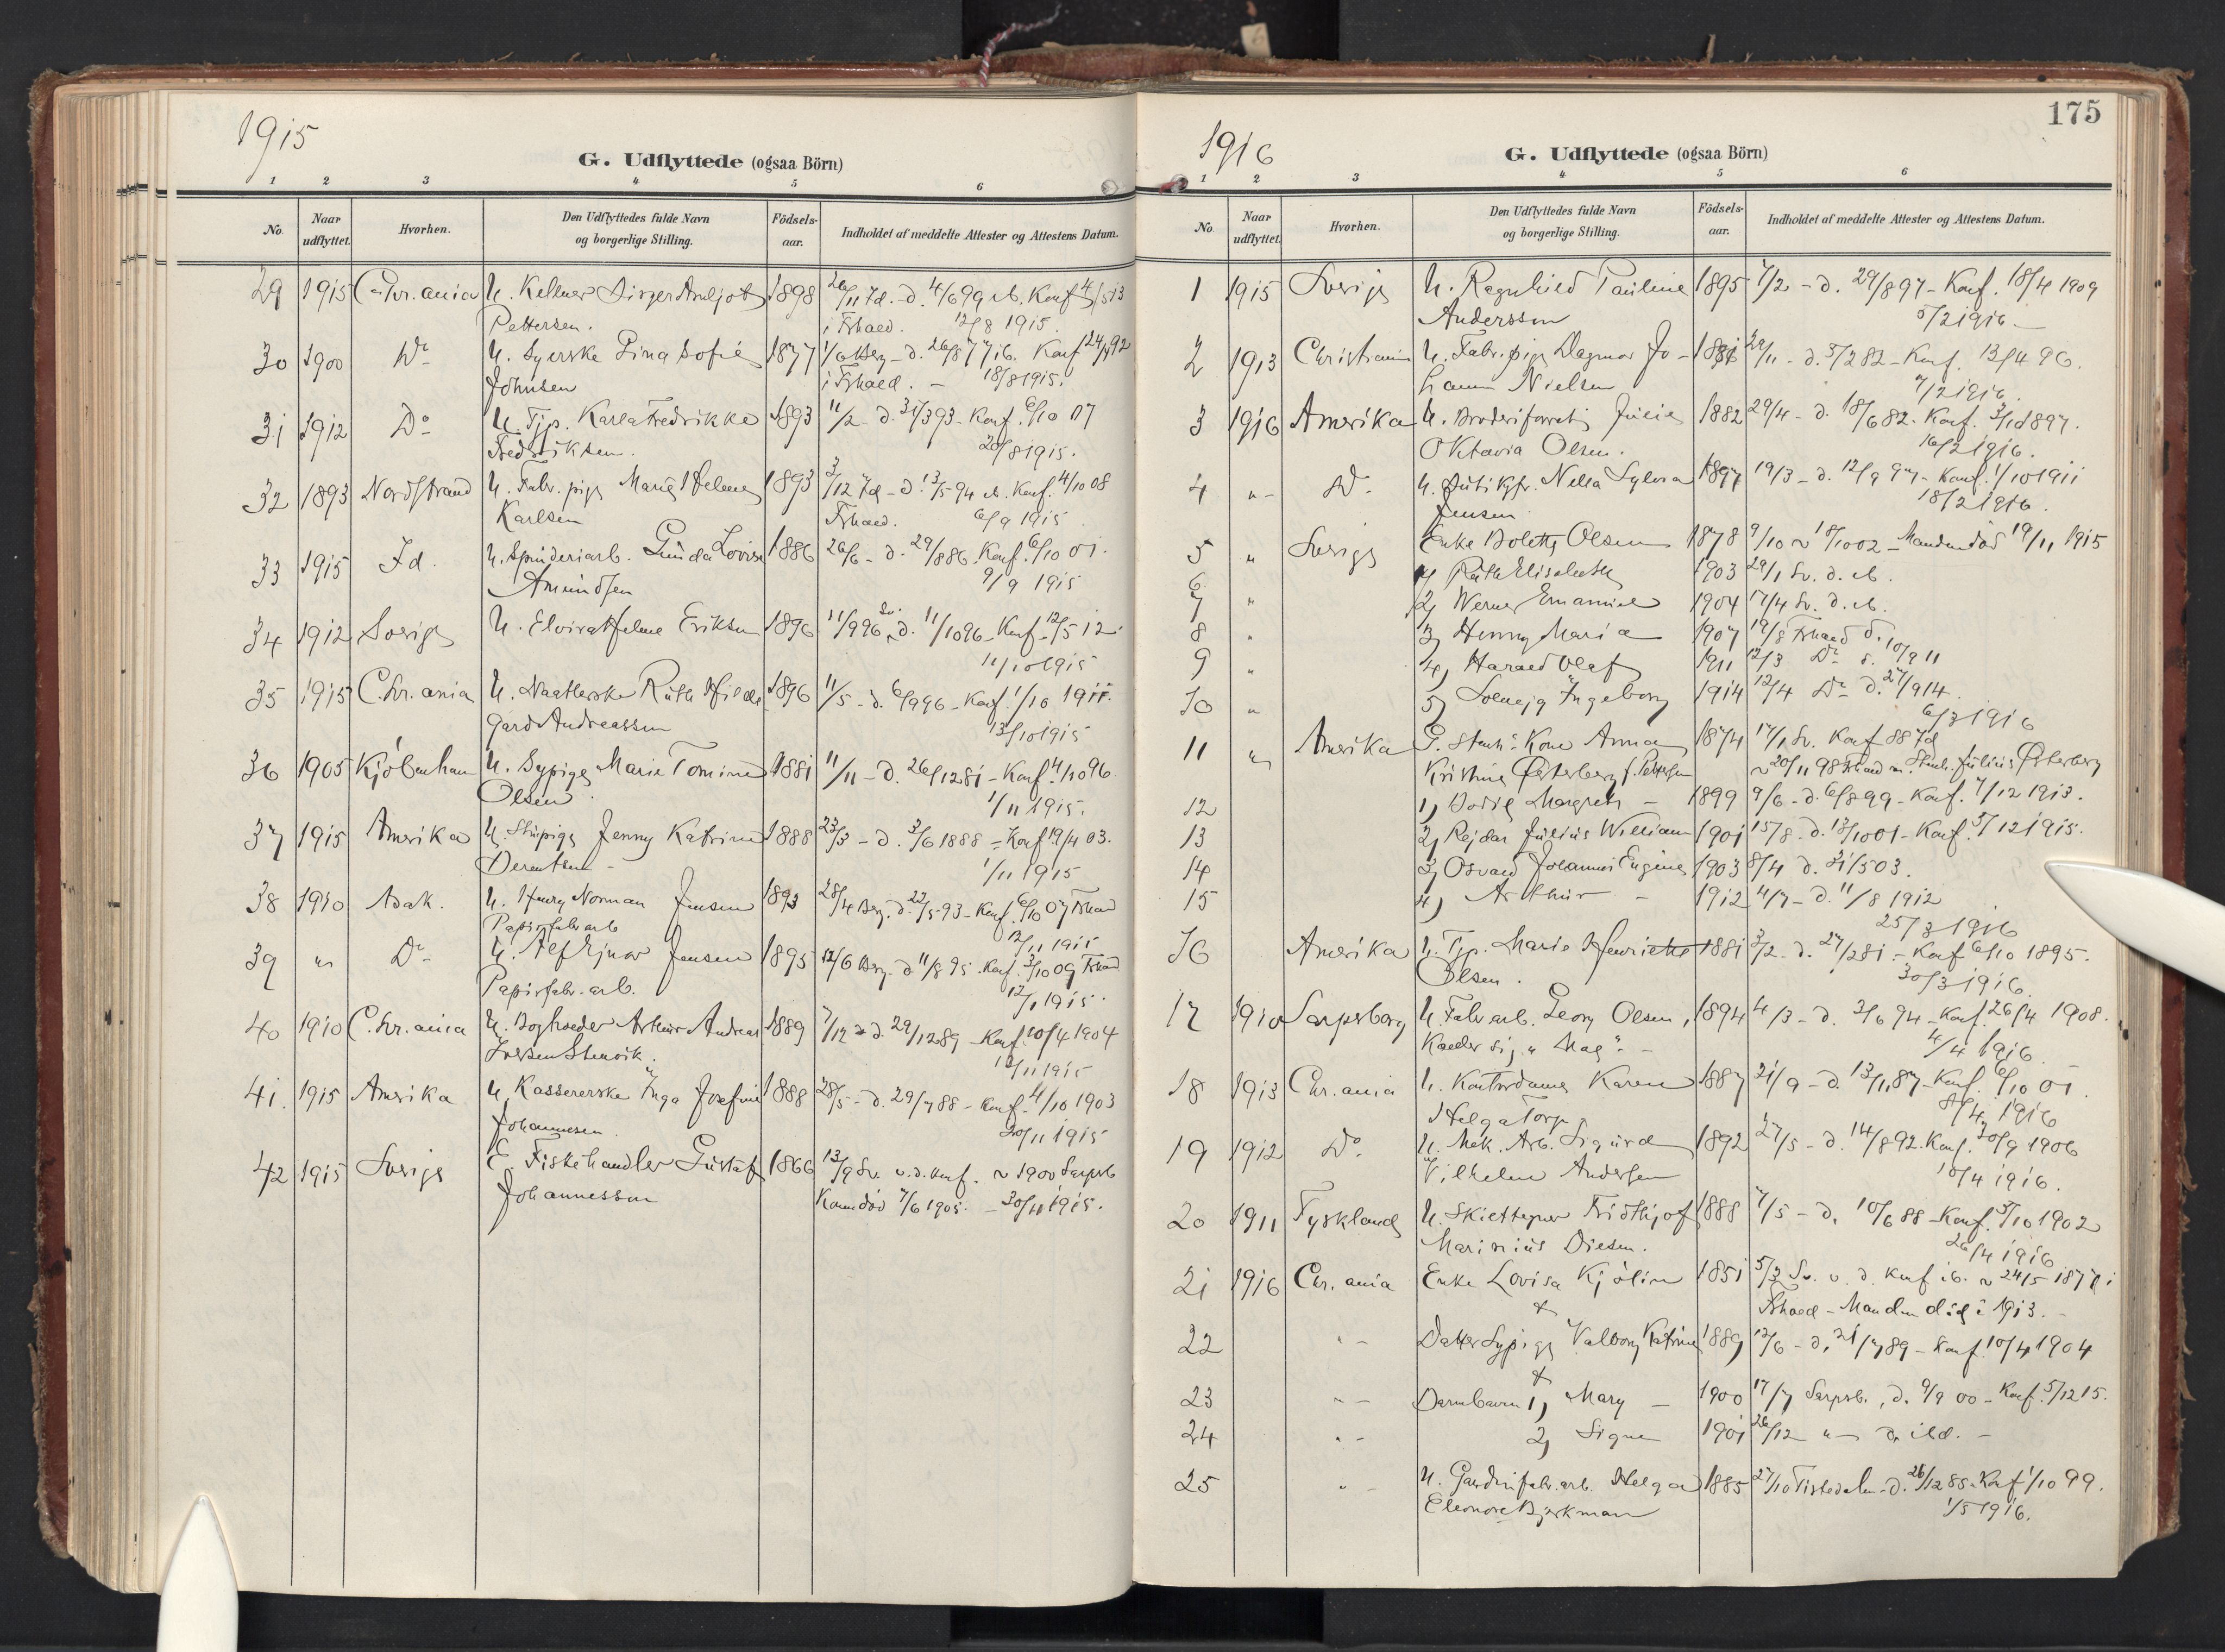 1915
G. Udflyttede (ogsaa Börn)
1 2 3 4 5 6
No. Naar udflyttet. Hvorhen. Den Udflyttedes fulde Navn og borgerlige Stilling. Födsels-aar. Indholdet af meddelte Attester og Attestens Datum.
29 1915 Chr.ania U. Kellner Birger Arnljot 1898 26/11 Id. d. 4/6 99 ib. Konf. 4/5 13
Pettersen. i Fhald. 12/8 1915.
30 1900 Do U. Syerske Lina Sofie 1877 1/6 Berg - d. 26/8 77 ib. Konf 24/4 92
Johnsen i Fhald. - 18/8 1915.
31 1912 Do U. Tjp. Karla Fredrikke 1893 11/2 d. 31/3 93 - Konf. 6/10 07
Fredriksen. 20/8 1915.
32 1893 Nordstrand U. Fabr. pige Marie Helene 1893 3/12 Id - d. 13/5 94 ib. Konf. 4/10 08
Karlsen Fhald. 6/9 1915
33 1915 Id. U. Spinderiarb. Gunda Lovise 1886 26/6 - d. 29/8 86. Konf. 6/10 01.
Amundsen 9/9 1915
34 1912 Sverige U. Elvira Helene Eriksen 1896 11/9 96 Sv. d. 11/10 96 - Konf. 12/5 12.
11/10 1915
35 1915 C.hr.ania U. Naatlerske Ruth Hilde 1896 11/5 - d. 6/9 96 - Konf. 1/10 1911.
gard Andreassen 13/10 1915
36 1905 Kjöbenhavn U. Sypige Marie Tomine 1881 11/11 - d. 26/12 81 - Konf. 4/10 96
Olsen. 1/11 1915.
37 1915 Amerika U. Stupige Jenny Katrine 1888 23/3 - d. 3/6 1888 - Konf. 19/4 03.
Berentsen - 1/11 1915
38 1910 Adak. U. Henry Norman Jensen 1893 28/4 Berg. d. 22/5 93 - Konf. 6/10 07 Fhald
Papirfabr.arb 12/11 1915
39 " Do U. Alf Ejnar Jensen 1895 12/6 Berg. d. 11/8 95. Konf. 3/10 09 Fhald
Papirfabr. arb. 12/11 1915.
40 1910 C.hr.ania U. Bogholder Arthur Andreas 1889 7/12 d. 29/12 89 - Konf. 10/4 1904
Iversen Stenvik. 12/11 1915
41. 1915 Amerika U. Kassererske Inga Josefine 1888 28/5 - d. 29/7 88 - Konf. 4/10 1903
Johannesen. 20/11 1915
42 1915 Sverige E. Fiskehandler Gustaf 1866 13/9 Sv. v. d. konf. ~ 1900 Sarpsb
Johannessen Konen död 7/6 1905. - 30/11 1915.
175
1916
G. Udflyttede (ogsaa Börn)
1 2 3 4 5 6
No. Naar udflyttet. Hvorhen. Den Udflyttedes fulde Navn og borgerlige Stilling. Födsels-aar. Indholdet af meddelte Attester og Attestens Datum.
1 1915 Sverige U. Ragnhild Pauline 1895 7/2 - d. 29/8 97 - Konf. 18/4 1909
Andersson 5/2 1916 -
2 1913 Christiania U. Fabr.pige Dagmar Jo- 1881 29/11 - d. 5/2 82 - Konf. 13/4 96.
hanne Nielsen 7/2 1916.
3 1916 Amerika U. Broderiforretn. Julie 1882 29/4 - d. 18/6 82. Konf. 3/10 1897.
Oktavia Olsen. 16/2 1916.
4 " - Do. U. Butikjfr. Nella Sylvia 1897 19/3 - d. 12/9 97 - Konf. 1/10 1911
Jensen 18/2 1916.
5 " Sverige Enke Bolette Olsen 1878 9/10 ~ 18/10 02 - Manden död 19/11 1915
6 1) Ruth Elisabeth 1903 29/1 Sv. d. ib.
7 " 2) Werner Emanuel 1904 17/4 Sv. d. ib.
8 " 3) Henny Maria 1907 19/8 Fhald d.
9 " 4) Harald Olaf 1911 12/3 Do d. 10/9 11
10 " 5) Solvejg Ingeborg 1914 12/4 Do d. 27/9 14.
6/3 1916
11 " Amerika G. Stenh. Kone Anna 1874 17/1 Sv. Konf 88 Id
Kristine Österberg f. Pettersen ~ 20/11 98 Fhald m. Stenh. Julius Österberg
12 1) Bodil Margreth - 1899 9/6 - d. 6/8 99 - Konf. 7/12 1913.
13 2) Rejdar Julius William 1901 15/8 - d. 13/10 01 - Konf. 5/12 1915.
14 3) Osvald Johannes Eugene 1903 8/4 d. 31/5 03.
15 4) Arthur - 1912 4/7 - d. 11/8 1912
25/3 1916
16 Amerika U. Tjp. Marie Henriette 1881 3/2 - d. 27/2 81. - Konf 6/10 1895.
Olsen. 30/3 1916.
17 1910 Sarpsborg U. Fabr.arb. Georg Olsen, 1894 4/3 - d. 3/6 94 - Konf. 26/4 1908.
Kalder sig "Mag". - 4/4 1916
18 1913 Chr.ania U. Kontordame Karen 1887 21/9 - d. 13/11 87 - Konf. 6/10 01.
Helga Torp 8/4 1916
19 1912 Do. U. Mek. Arb. Sigurd 1892 27/5 - d. 14/8 92. Konf. 30/9 1906
Vilhelm Andersen 10/4 1916.
20 1911 Tyskland U. Skiltegner Fridthjof 1888 7/5 - d. 10/6 88 - Konf. 5/10 1902
Marinius Diesen. 26/4 1916
21 1916 Chr.ania Enke Lovisa Kjölin 1851 5/3 Sv. v. d. Konf ib. ~ 24/5 1878 i
& Fhald - Manden död i 1913. -
22 " - Datter Sypige Valborg Katrine 1889 12/6 - d. 21/7 89 - Konf. 10/4 1904
&
23 " - Barnebarn 1) Mary - 1900 17/7 Sarpsb., d. 9/9 00 - Konf. 5/12 15.
24 " - 2) Signe 1901 26/12 " - d. ibd. -
25 " - U. Gardinfabr.arb. Helga 1885 27/10 Tistedalen - d. 26/12 85 - Konf 1/10 99.
Eleonore Bjerkman 1/5 1916.